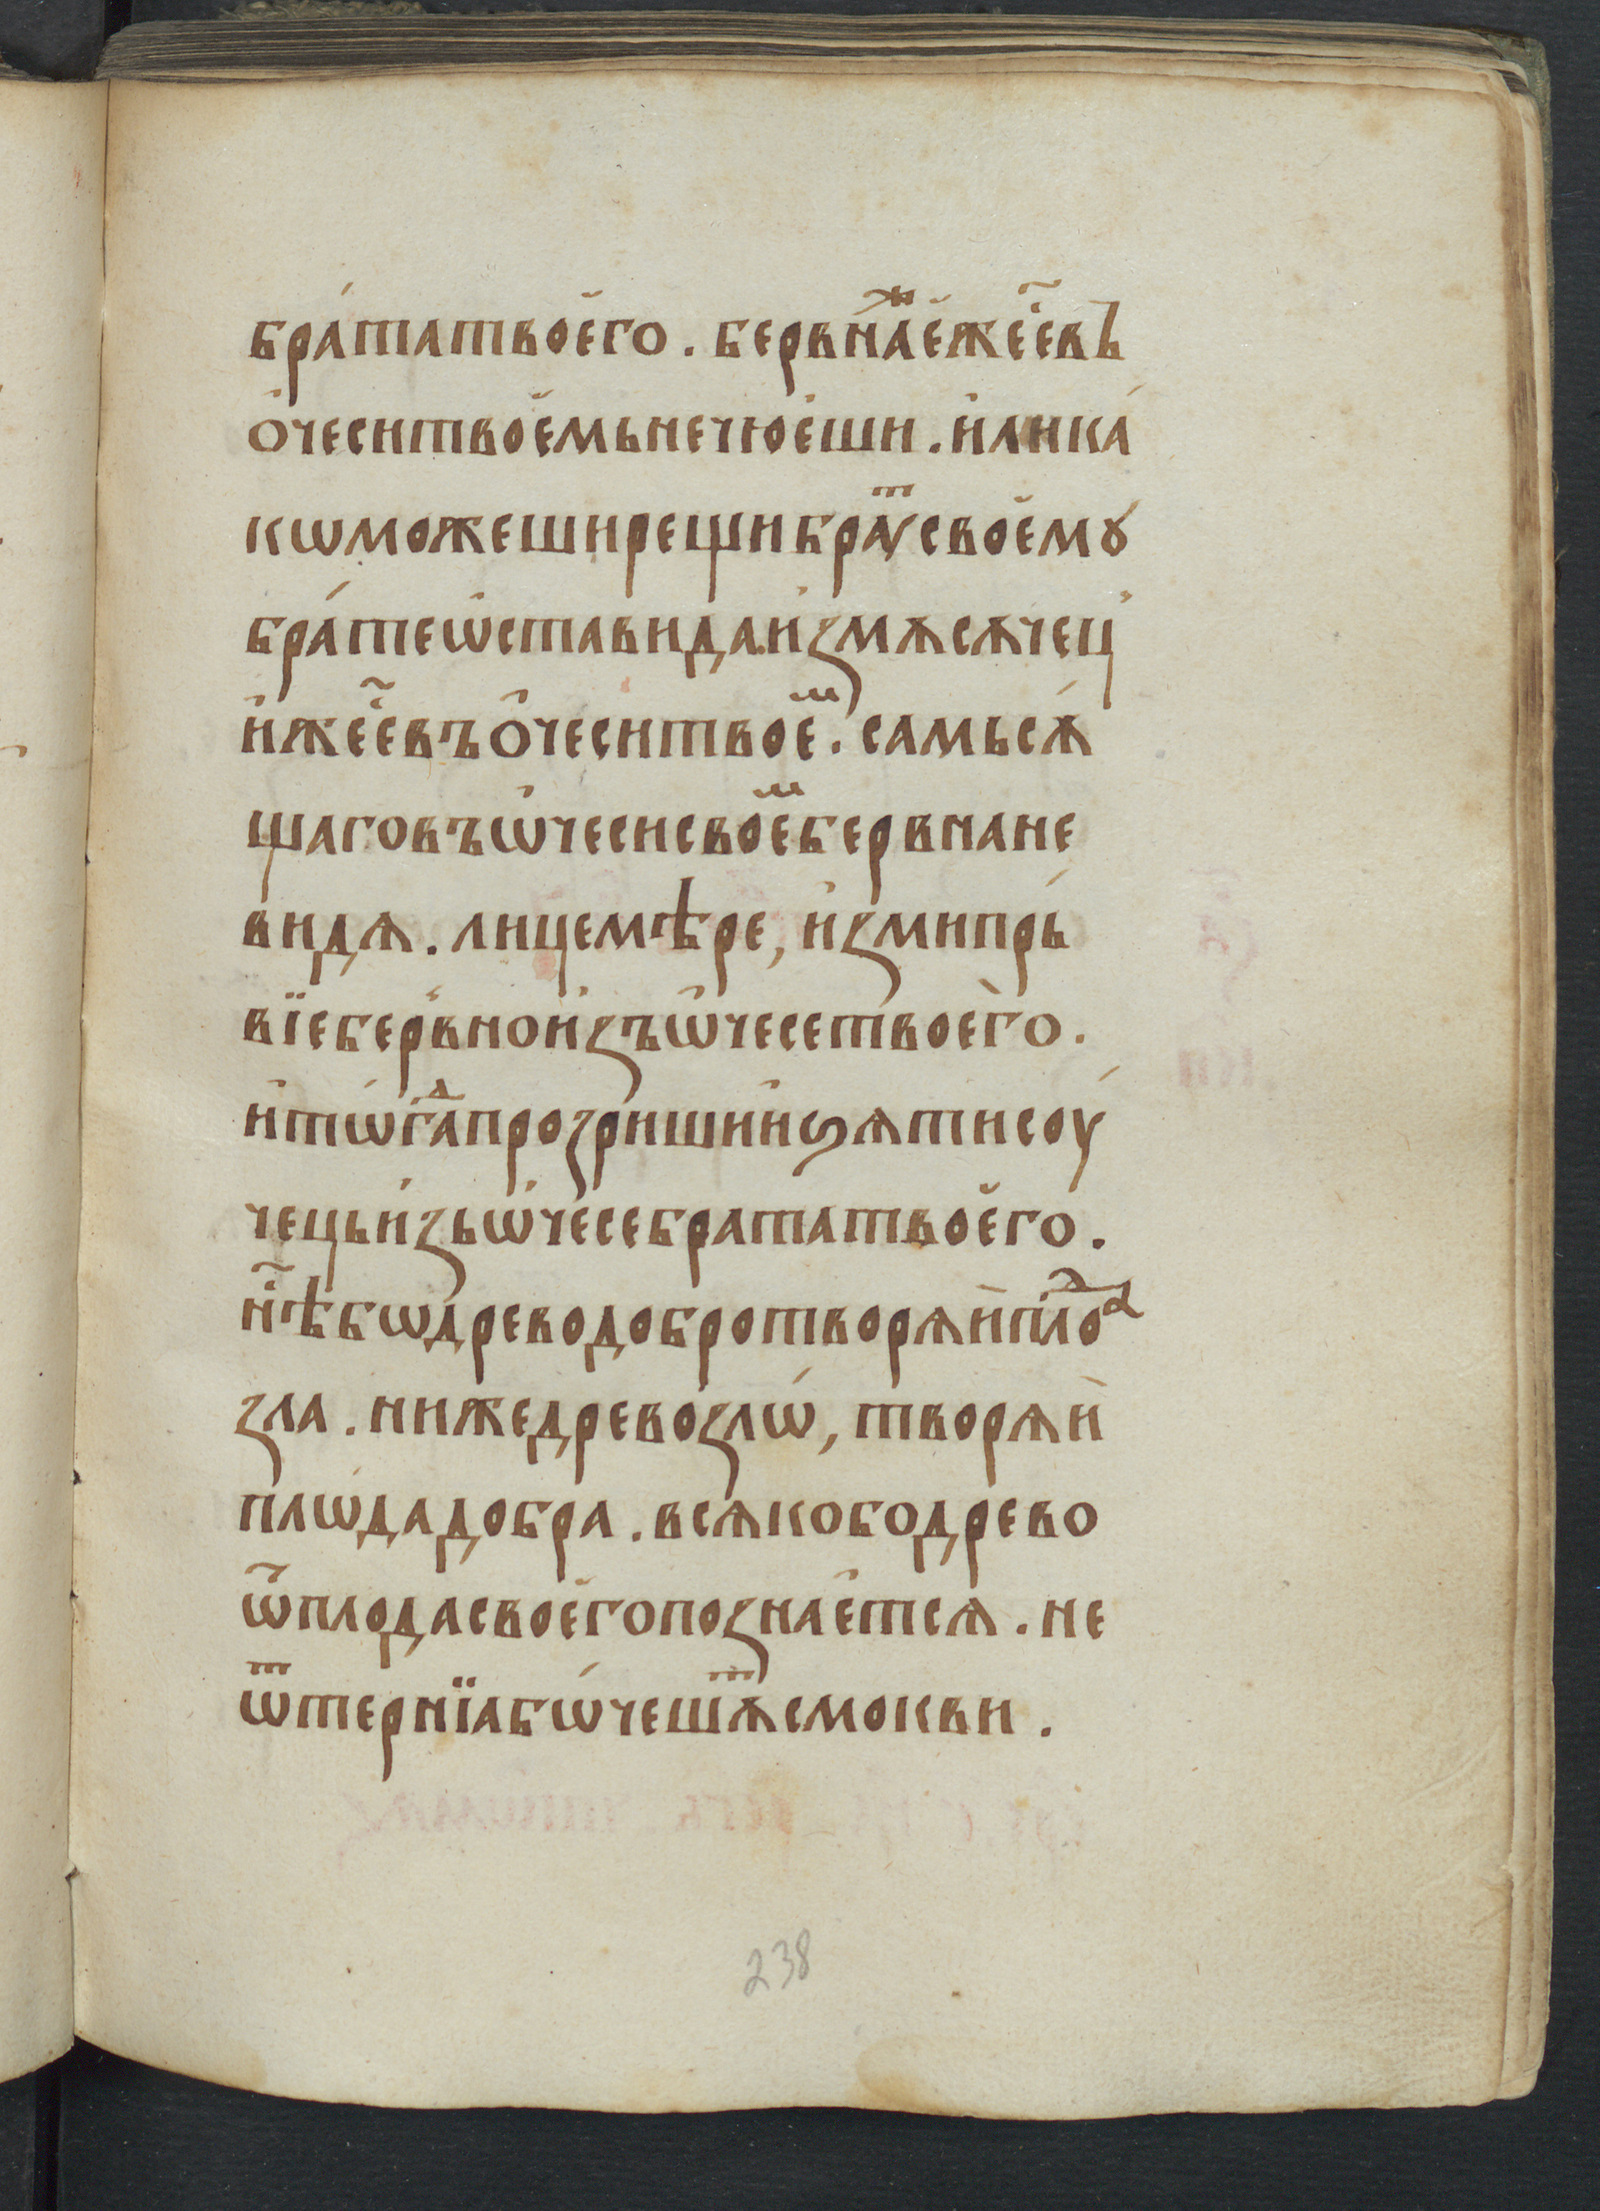 бра́татвое҆го . бервнаⷤе҆жее҆҃въ
о҆чеситвое҆мьнечюе҆ши . и҆лика́
кѡможеширещибраⷮꙋсвоемꙋ
бра́теѡ҆ставидаи҆змѧсѧчец̾
и҆жее҆҃въо҆чеситвое҆ⷨ . самьсѧ́
щаговъѡ҆чесисвое҆ⷨбервнане
видѧ . лицемѣре , и҆змипрь́
вїеберв̾ноизъѡ҆чесетвоегѝо .
и҆тѡгⷣапрозришиии҆ꙃѧтисоу́
чецьи҆зьѡ҆чесебрататвое҆го .
нѣ҃бѡдреводобротворѧи҆плоⷣа
зла . нижедревозлѡ́ , творѧи҆
плѡ́дадобра . всѧкободрево
ѿплодасвое҆гопознае҆тсѧ . не
ѿтернїабѡ́чешⷮѧсмокви .
238